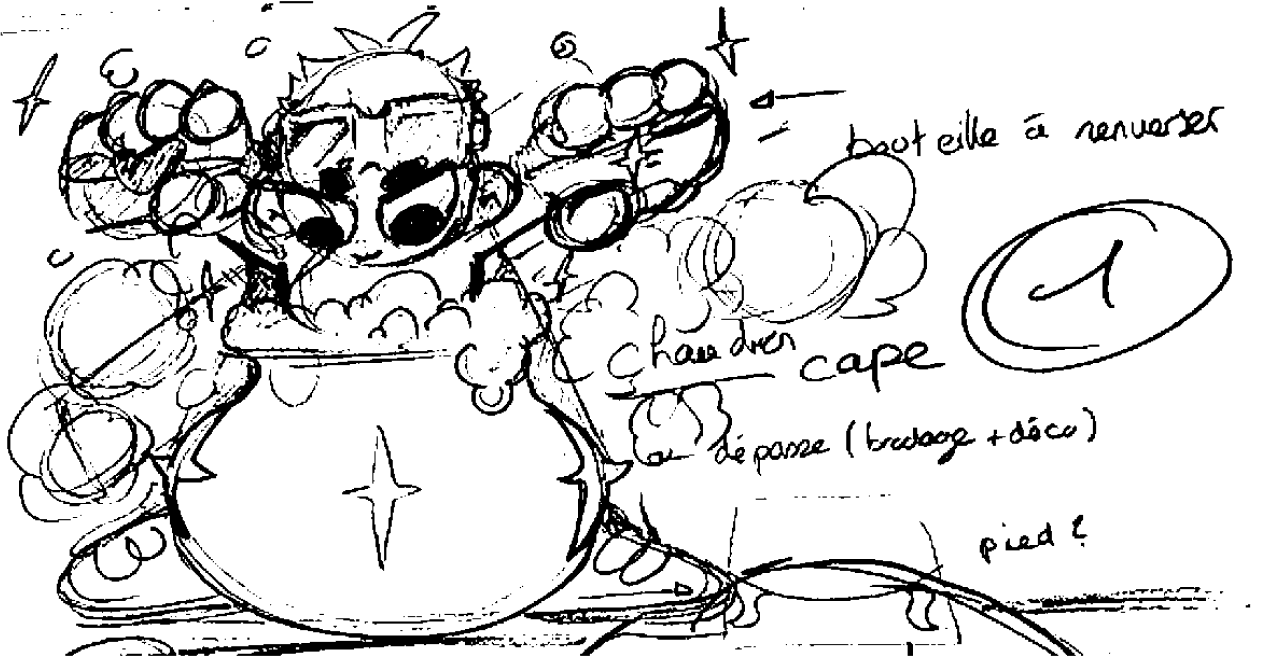 bouteille à renverser
1
chaudron
cape
dépasse (brodage + déco)
pied ?